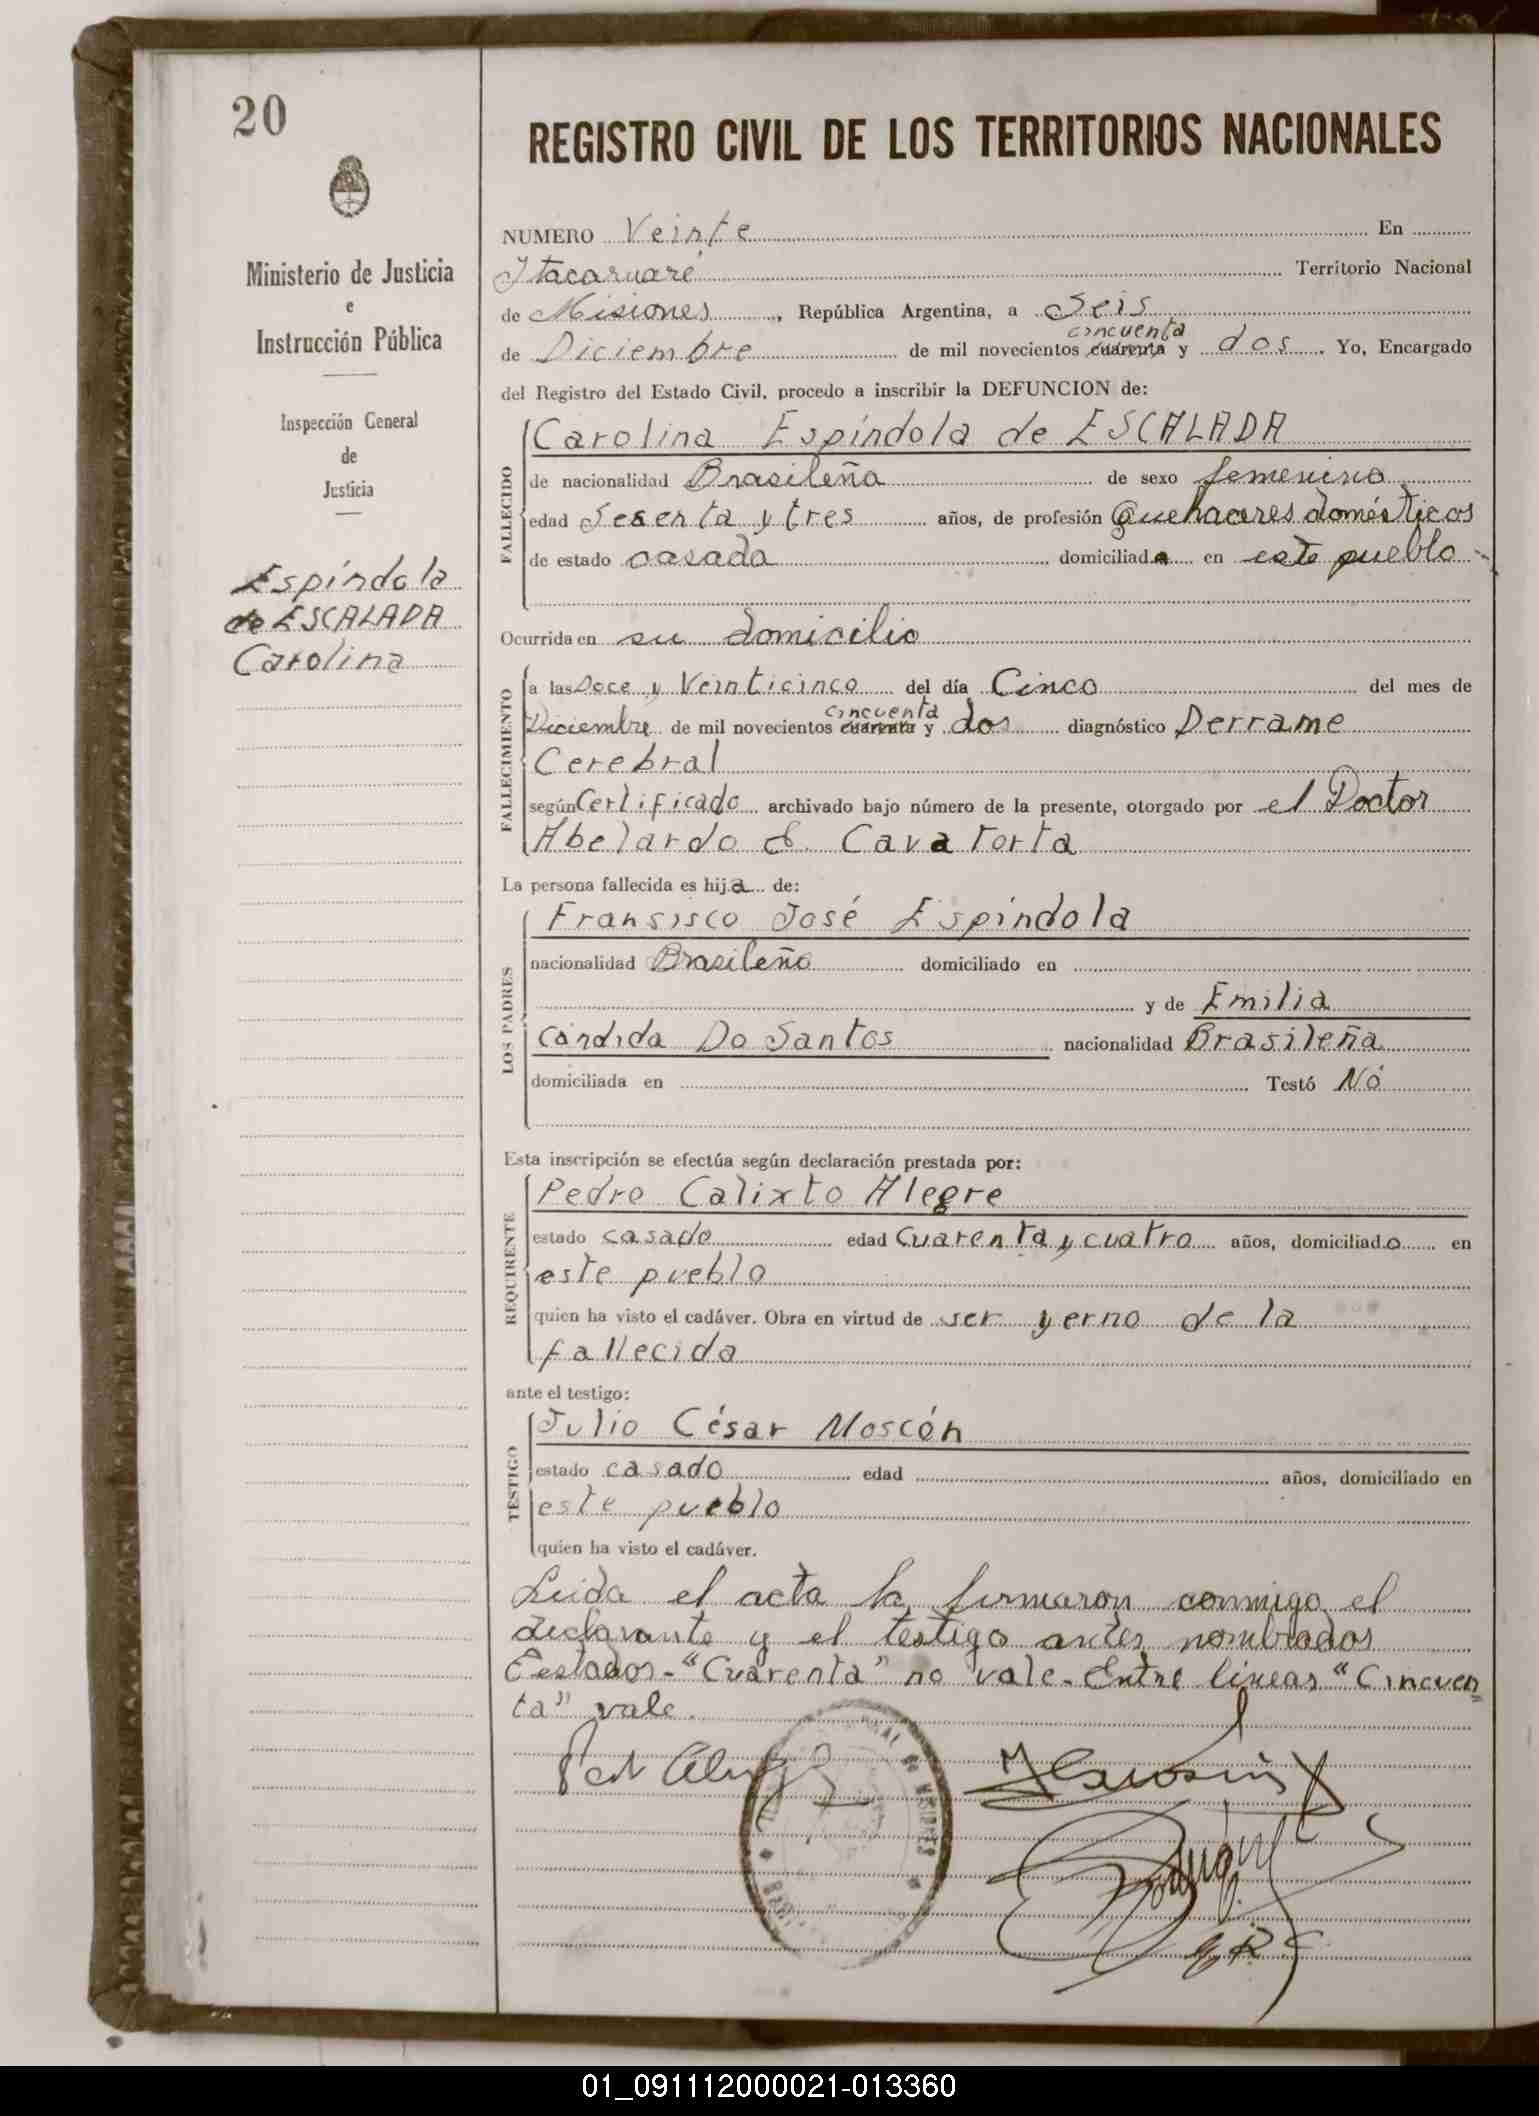 20
Ministerio de Justicia
e
Instrucción Pública
Inspección General
de
Justicia
Espíndola
de ESCALADA
Carolina
REGISTRO CIVIL DE LOS TERRITORIOS NACIONALES
NUMERO Veinte En
Itacaruaré Territorio Nacional
de Misiones, República Argentina, a Seis
cincuenta
de Diciembre de mil novecientos cuarenta y dos. Yo, Encargado
del Registro del Estado Civil, procedo a inscribir la DEFUNCION de:
FALLECIDO
Carolina Espíndola de ESCALADA
de nacionalidad Brasileña de sexo femenino
edad Sesenta y tres años, de profesión Quehaceres domésticos
de estado casada domiciliada en este pueblo
Ocurrida en su domicilio
FALLECIMIENTO
a las Doce y Veinticinco del día Cinco del mes de
cincuenta
Diciembre de mil novecientos cuarenta y dos diagnóstico Derrame
Cerebral
según Certificado archivado bajo número de la presente, otorgado por el Doctor
Abelardo E. Cavatorta
La persona fallecida es hija de:
LOS PADRES
Fransisco José Espíndola
nacionalidad Brasileño domiciliado en
y de Emilia
Cándida Do Santos nacionalidad Brasileña
domiciliada en Testó Nó
Esta inscripción se efectúa según declaración prestada por:
REQUIRENTE
Pedro Calixto Alegre
estado casado edad Cuarenta y cuatro años, domiciliado en
este pueblo
quien ha visto el cadáver. Obra en virtud de ser yerno de la
fallecida
ante el testigo:
TESTIGO
Julio César Moscón
estado casado edad años, domiciliado en
este pueblo
quien ha visto el cadáver.
Leida el acta la firmaron conmigo el
declarante y el testigo antes nombrados
Testados-"Cuarenta" no vale-Entre líneas "Cincuen
ta" vale.
01_091112000021-013360